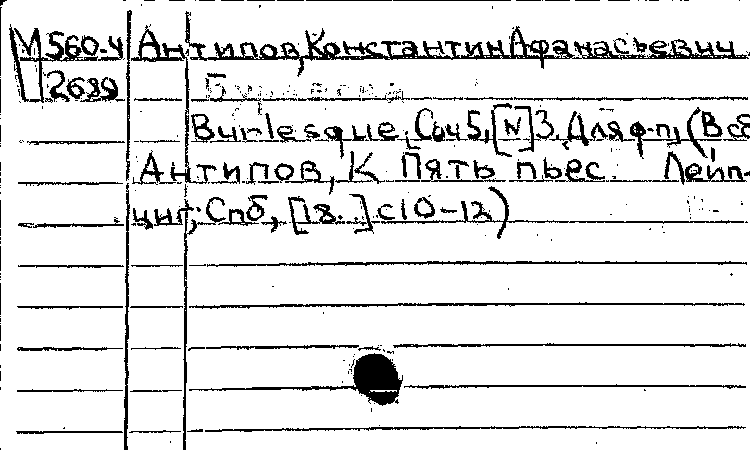 М560-4 Антипов, Константин Афанасьевич
2689
Burlesque, Соч 5, [N]3. Для ф-п, (В сб
Антипов, К Пять пьес. Лейп-
циг; Спб, [18..] с10-12)